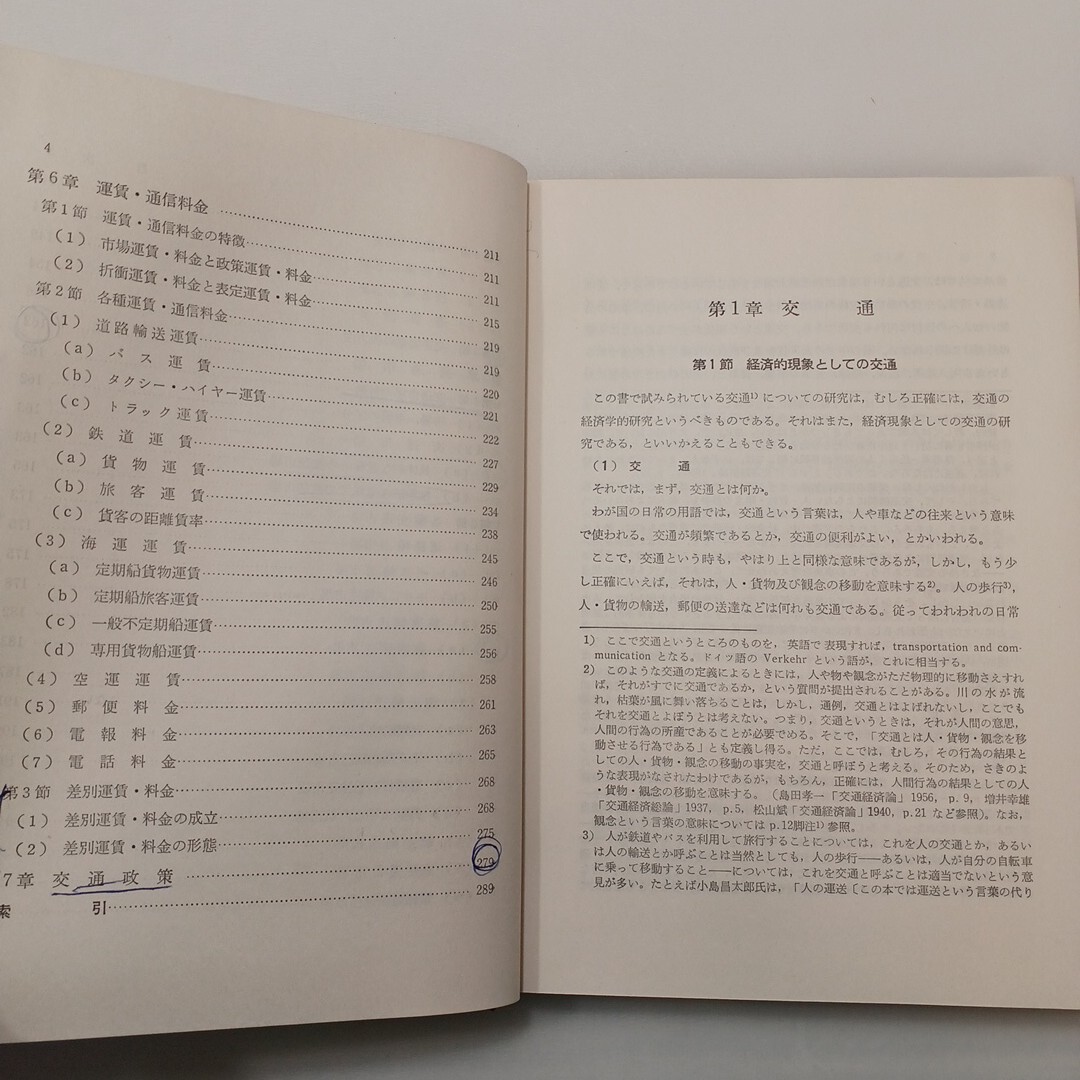 4
第6章 運賃・通信料金 …… 211
第1節 運賃・通信料金の特徴…… 211
(1) 市場運賃・料金と政策運賃・料金…… 211
(2) 折衝運賃・料金と表定運賃・料金…… 215
第2節 各種運賃・通信料金…… 219
(1) 道路輸送運賃…… 219
(a) バス運賃…… 220
(b) タクシー・ハイヤー運賃…… 221
(c) トラック運賃…… 222
(2) 鉄道運賃…… 227
(a) 貨物運賃…… 229
(b) 旅客運賃…… 234
(c) 貨客の距離賃率…… 238
(3) 海運運賃…… 245
(a) 定期船貨物運賃…… 246
(b) 定期船旅客運賃…… 250
(c) 一般不定期船運賃…… 255
(d) 専用貨物船運賃…… 256
(4) 空運運賃…… 258
(5) 郵便料金…… 261
(6) 電報料金…… 263
(7) 電話料金…… 265
第3節 差別運賃・料金…… 268
(1) 差別運賃・料金の成立…… 268
(2) 差別運賃・料金の形態…… 275
7章 交通政策 …… 279
索引…… 289
第1章 交通
第1節 経済的現象としての交通
この書で試みられている交通1)についての研究は，むしろ正確には，交通の
経済学的研究というべきものである。それはまた，経済現象としての交通の研
究である，といいかえることもできる。
(1) 交通
それでは，まず，交通とは何か。
わが国の日常の用語では，交通という言葉は，人や車などの往来という意味
で使われる。交通が頻繁であるとか，交通の便利がよい，とかいわれる。
ここで，交通という時も，やはり上と同様な意味であるが，しかし，もう少
し正確にいえば，それは，人・貨物及び観念の移動を意味する2)。人の歩行3)，
人・貨物の輸送，郵便の送達などは何れも交通である。従ってわれわれの日常
1) ここで交通というところのものを，英語で表現すれば，transportation and com-
munication となる。ドイツ語の Verkehr という語が，これに相当する。
2) このような交通の定義によるときには，人や物や観念がただ物理的に移動さえすれ
ば，それがすでに交通であるか，という質問が提出されることがある。川の水が流
れ，枯葉が風に舞い落ちることは，しかし，通例，交通とはよばれないし，ここでも
それを交通とよぼうとは考えない。つまり，交通というときは，それが人間の意思，
人間の行為の所産であることが必要でめる。そこで，「交通とは人・貨物・観念を移
動させる行為である」とも定義し得る。ただ，ここでは，むしろ，その行為の結果と
しての人・貨物・観念の移動の事実を，交通と呼ぼうと考える。そのため，さきのよ
うな表現がなされたわけであるが，もちろん，正確には，人間行為の結果としての人
・貨物・観念の移動を意味する。（島田孝一「交通経済論」1956, p. 9, 増井幸雄
「交通経済総論」1937, p. 5, 松山斌「交通経済論」1940, p. 21 など参照）。なお，
観念という言葉の意味については p.12脚注1) 参照。
3) 人が鉄道やバスを利用して旅行することについては，これを人の交通とか，あるい
は人の輸送とか呼ぶことは当然としても，人の歩行――あるいは，人が自分の自転車
に乗って移動すること――については，これを交通と呼ぶことは適当でないという意
見が多い。たとえば小島昌太郎氏は，「人の運送〔この本では運送という言葉の代り